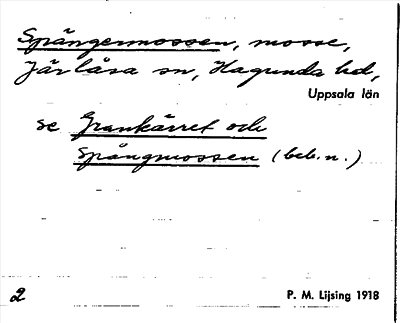 Spångermossen, mosse,
Järlåsa sn, Hagunda hd,
Uppsala län
se Grankärret och
Spångmossen (beb.n.)
2
P. M. Lijsing 1918